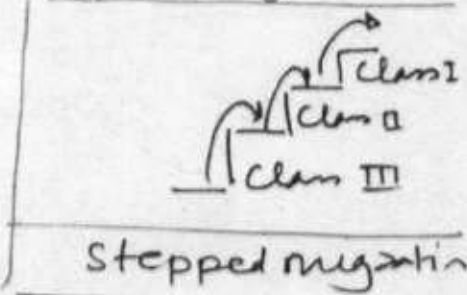 Class I
Class II
Class III
Stepped migration